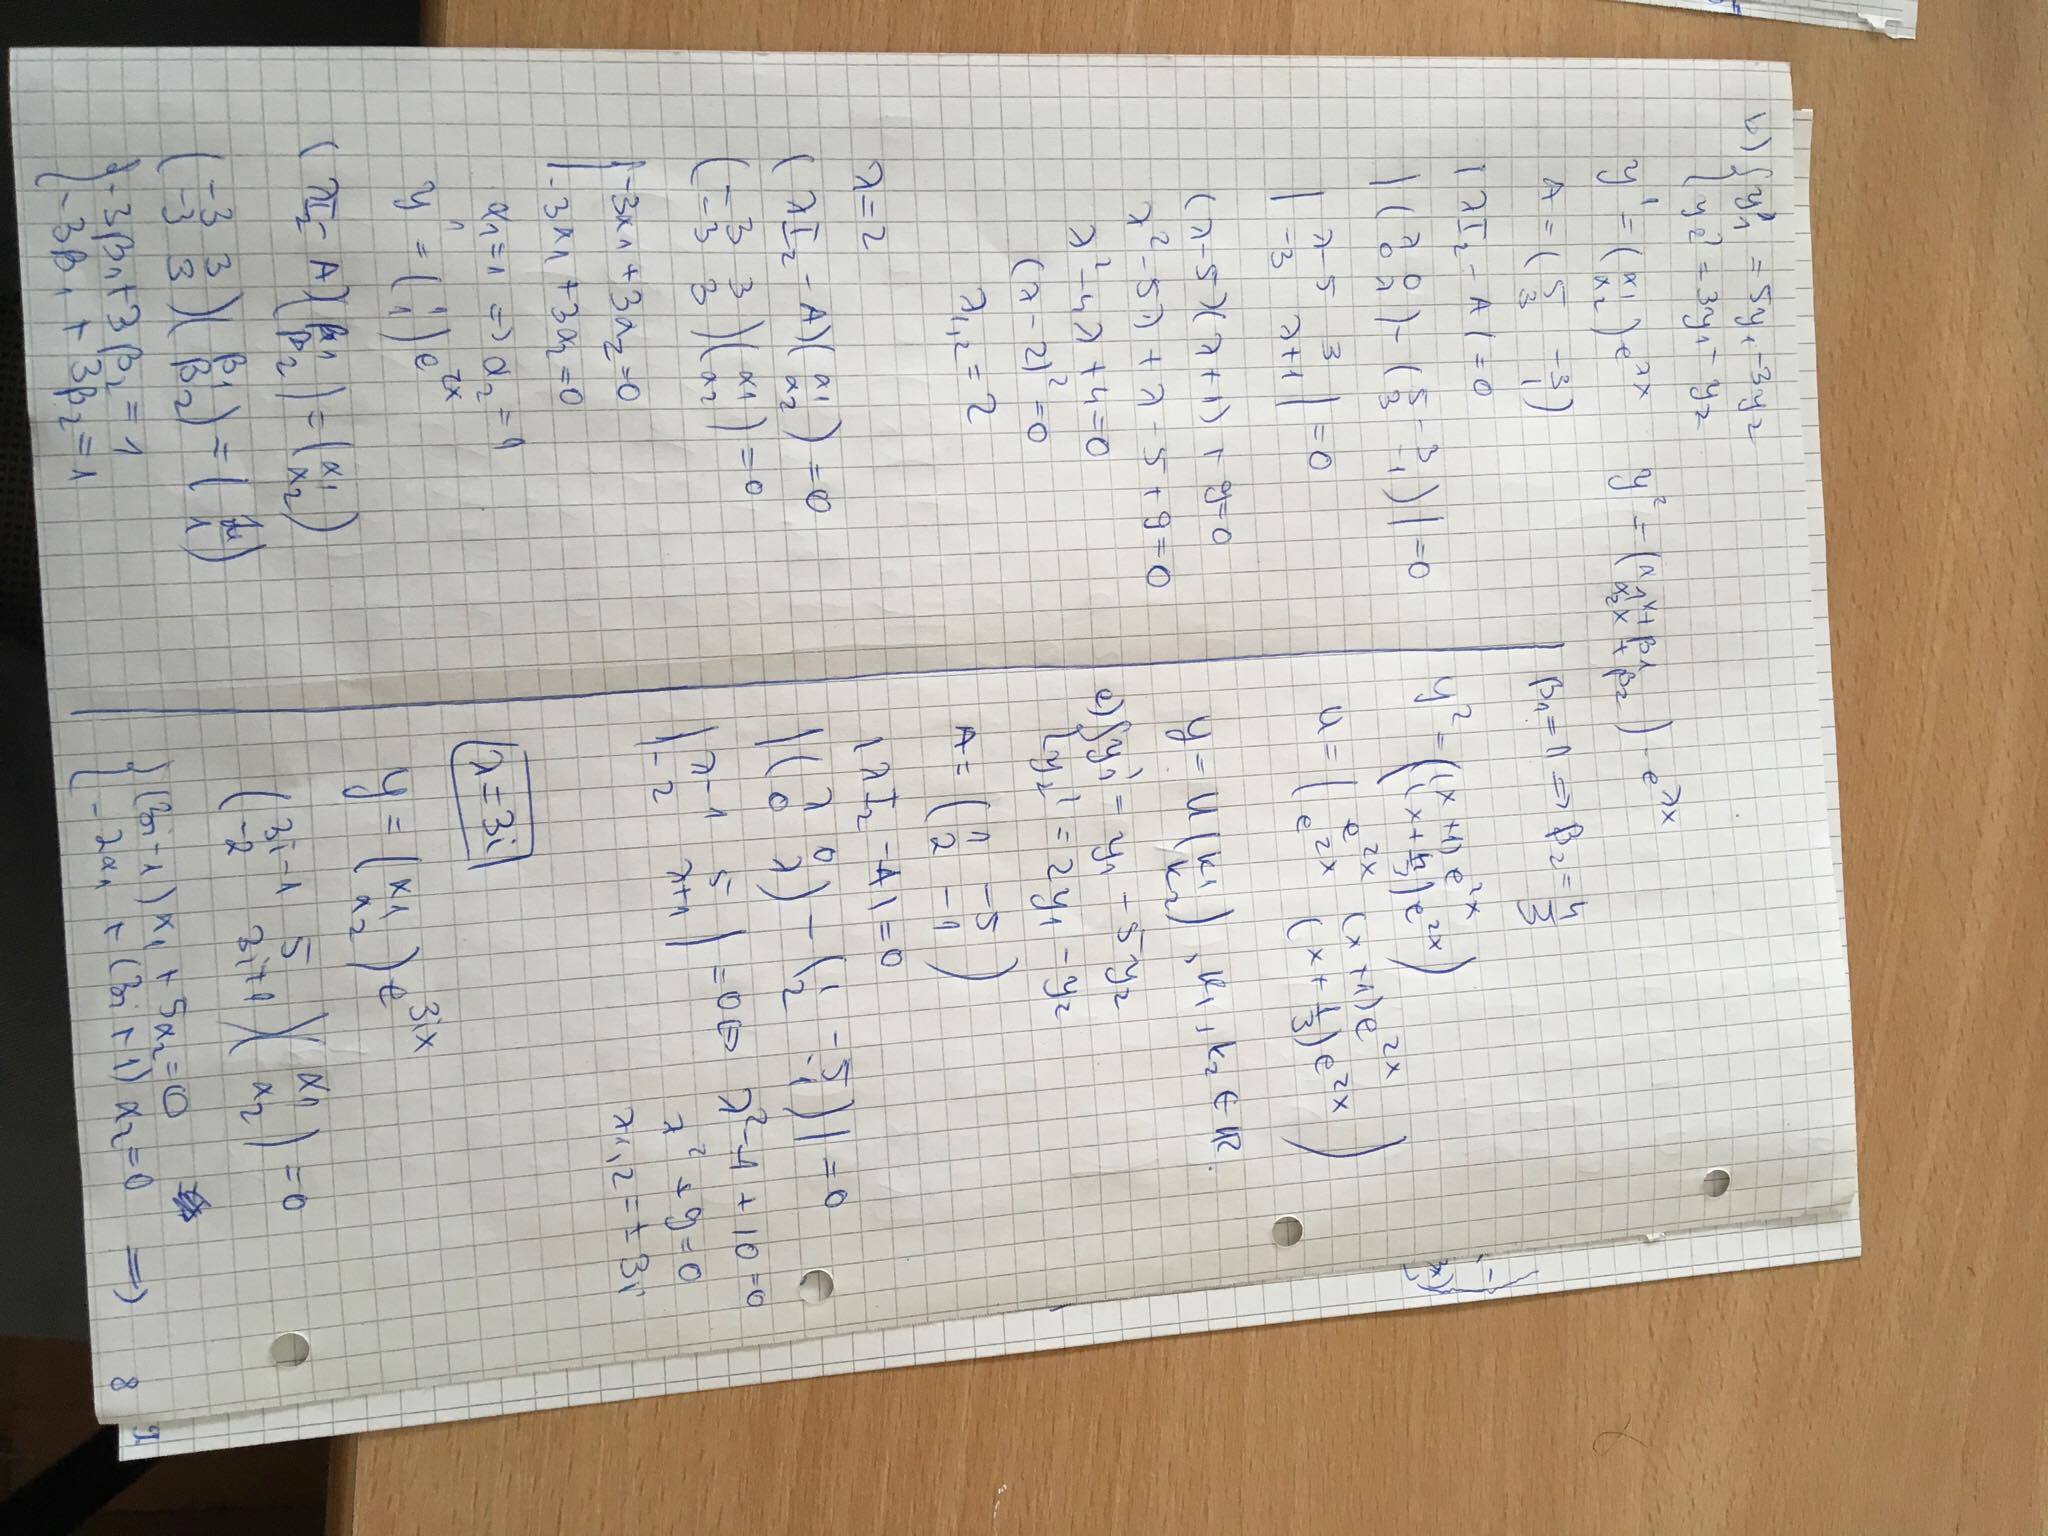 b) { y₁' = 5y₁ - 3y₂
{ y₂' = 3y₁ - y₂
y¹ = (α₁ α₂) e^λx   y² = (α₁x + β₁ α₂x + β₂) · e^λx
A = (5 -3 3 -1)
|λI₂ - A| = 0
|(λ 0 0 λ) - (5 -3 3 -1)| = 0
|λ-5 3 -3 λ+1| = 0
(λ-5)(λ+1) + 9 = 0
λ² - 5λ + λ - 5 + 9 = 0
λ² - 4λ + 4 = 0
(λ - 2)² = 0
λ₁,₂ = 2
λ = 2
(λI₂ - A)(α₁ α₂) = 0
(-3 3 -3 3)(α₁ α₂) = 0
| -3α₁ + 3α₂ = 0
| -3α₁ + 3α₂ = 0
α₁ = 1 => α₂ = 1
y¹ = (1 1) e^2x
(λI₂ - A)(β₁ β₂) = (α₁ α₂)
(-3 3 -3 3)(β₁ β₂) = (1 1)
{ -3β₁ + 3β₂ = 1
{ -3β₁ + 3β₂ = 1
β₁ = 1 => β₂ = 4/3
y² = ((x+1) e^2x (x + 4/3) e^2x)
u = (e^2x (x+1) e^2x e^2x (x + 1/3) e^2x)
y = u (k₁ k₂), k₁, k₂ ∈ R.
e) { y₁' = y₁ - 5y₂
{ y₂' = 2y₁ - y₂
A = (1 -5 2 -1)
|λI₂ - A| = 0
|(λ 0 0 λ) - (1 -5 2 -1)| = 0
|λ-1 5 -2 λ+1| = 0 ⇔ λ² - 1 + 10 = 0
λ² + 9 = 0
λ₁,₂ = ± 3i
λ = 3i
y = (α₁ α₂) e^3ix
(3i-1 5 -2 3i+1)(α₁ α₂) = 0
{ (3i-1)α₁ + 5α₂ = 0
{ -2α₁ + (3i+1)α₂ = 0 =>
8